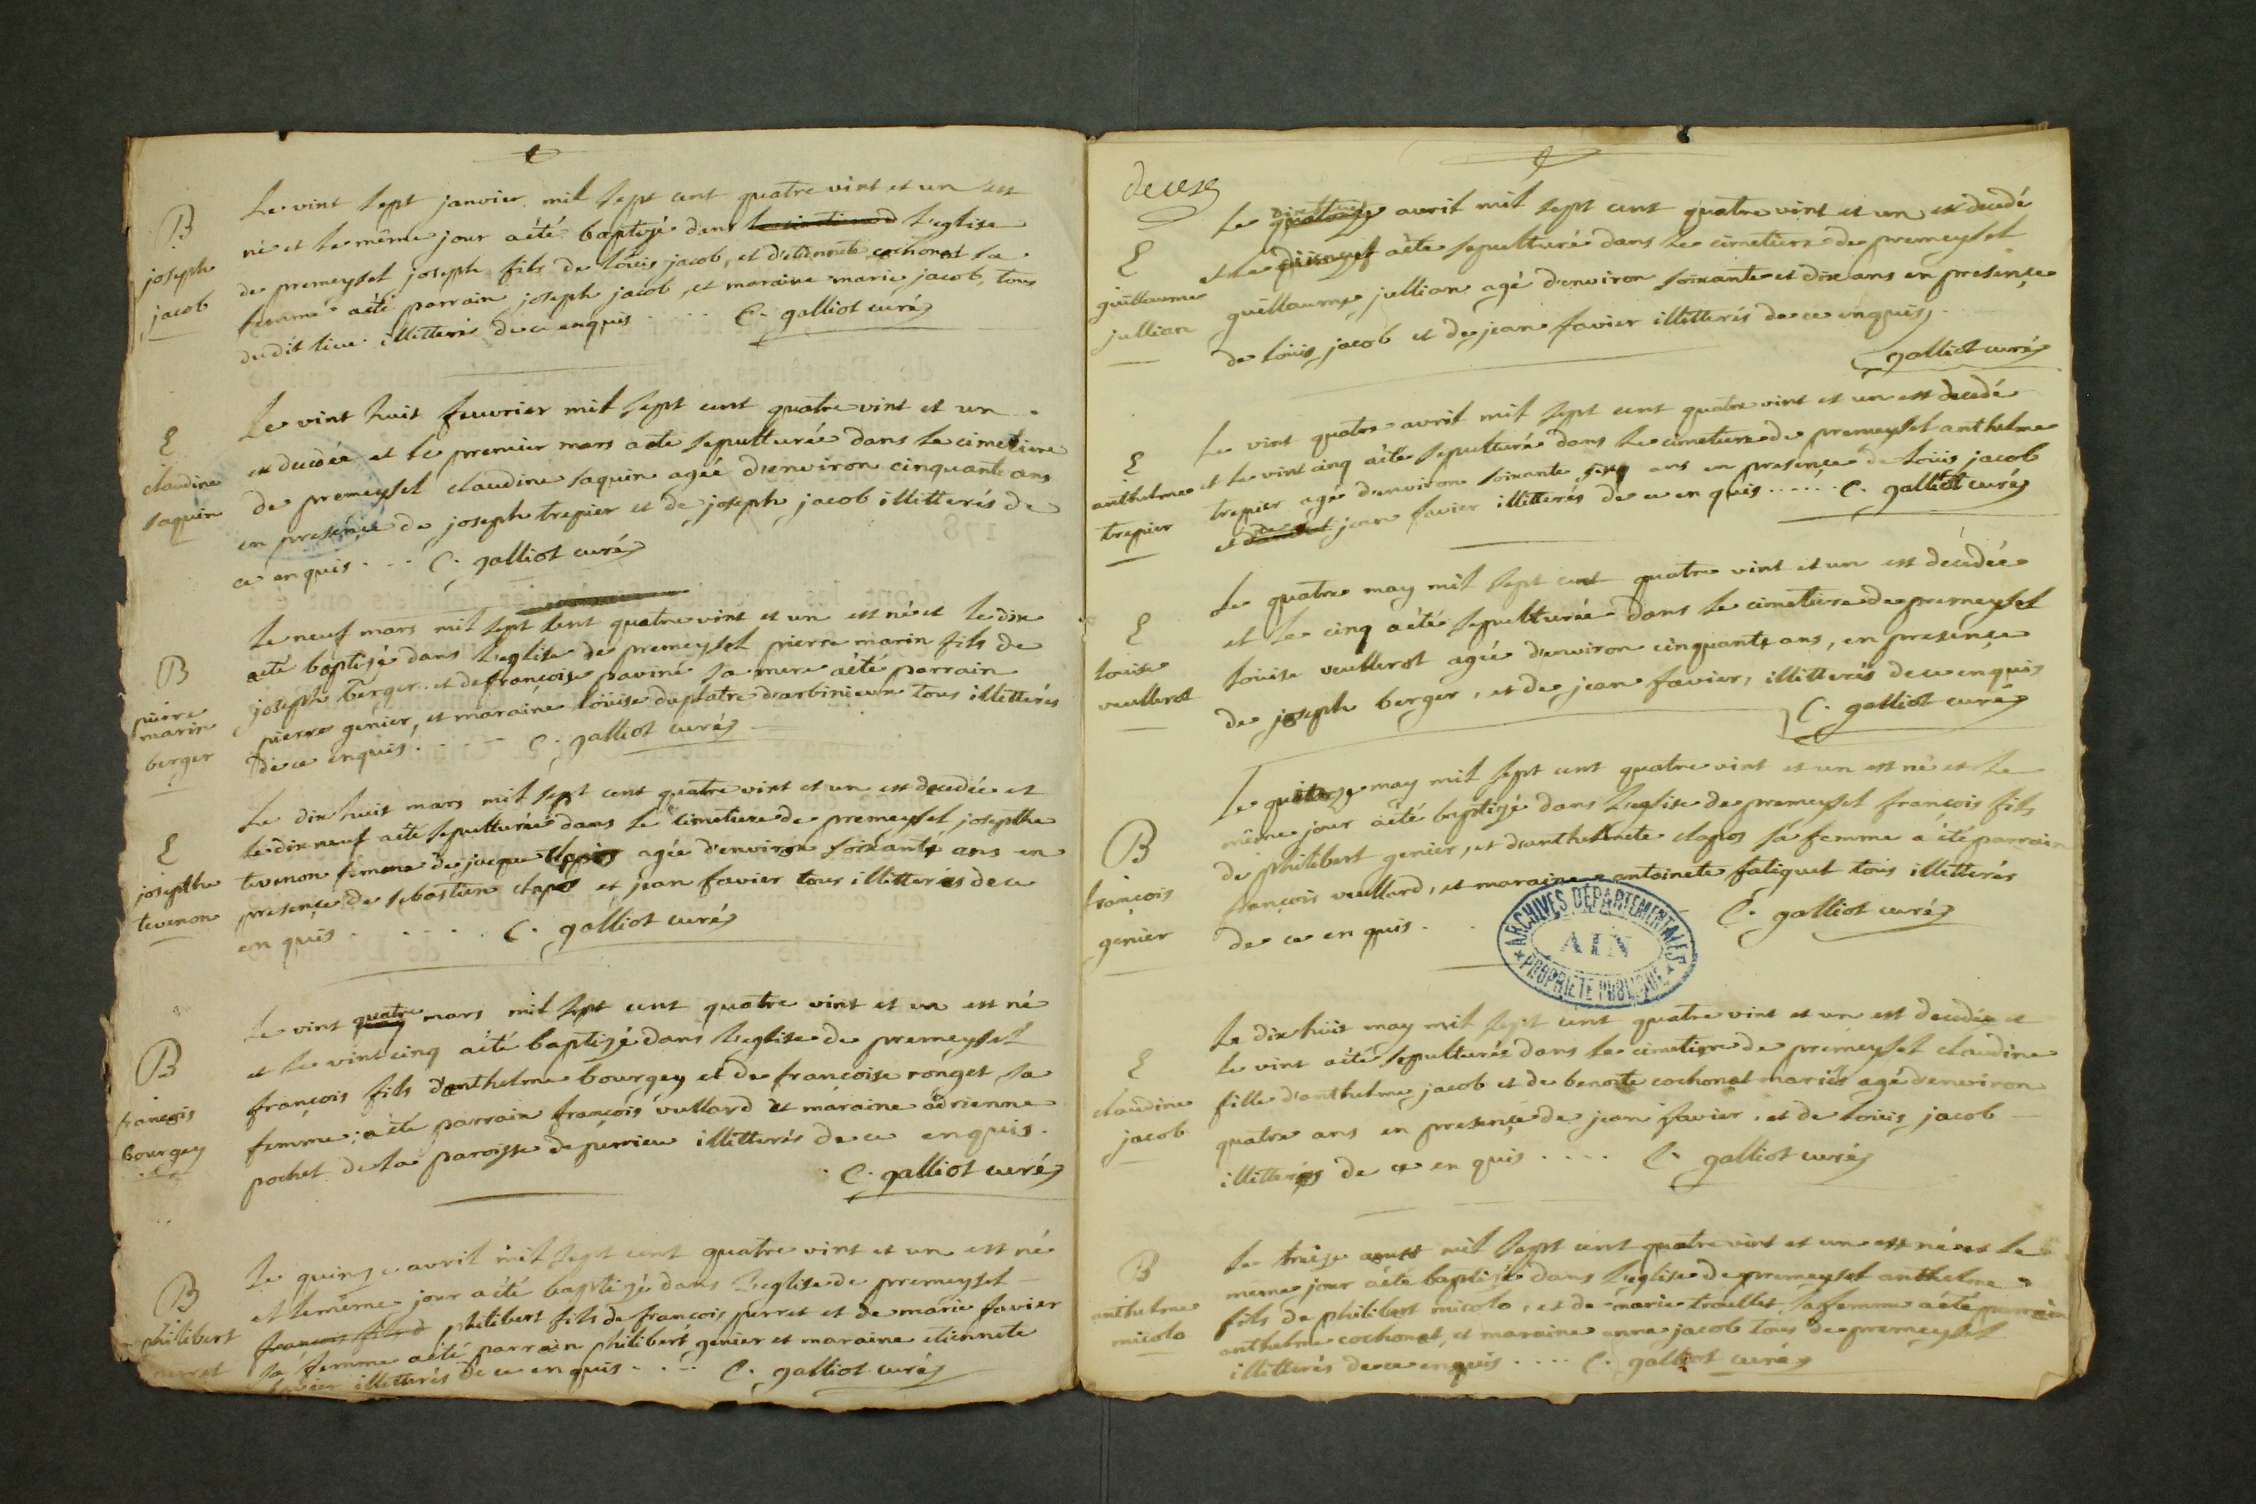 B
joseph
jacob
Le vint sept janvier mil sept cent quatre vint et un est
né et le même jour aété baptisé dans l'eglise
de premeysel joseph fils de loüis jacob, et d'etiennete cochonat sa
femme aété parrain joseph jacob, et maraine marie jacob, tous
dudit lieu illitterés de ce enquis .... C. galliot curé
E
claudine
saquin
Le vint huit feuvrier mil sept cent quatre vint et un
est decedée et le premier mars aété sepulturée dans le cimetiere
de premeysel claudine saquin agée d'environ cinquante ans
en presence de joseph trepier et de joseph jacob illitterés de
ce enquis ... C. galliot curé
B
pierre
marin
berger
Le neuf mars mil sept cent quatre vint et un est né et le dix
aété baptisé dans l'eglise de premeysel pierre marin fils de
joseph berger et de françoise paviné sa mere aété parrain
pierre genier, et maraine loüise duplatre d'arbinieux tous illitterés
de ce enquis ... C. galliot curé
E
josepthe
tevenon
Le dix huit mars mil sept cent quatre vint et un est decedée et
le dix neuf aété sepulturée dans le cimetiere de premeysel josepthe
tevenon femme de jacque clapos agée d'environ soixante ans en
presence de sebastien clapos et jean favier tous illitterés de ce
en quis ..... C. galliot curé
B
françois
bourgey
Le vint quatre mars mil sept cent quatre vint et un est né
et le vint cinq aété baptizé dans l'eglise de premeysel
françois fils d'anthelme bourgey et de francoise ronget sa
femme; aété parrain françois vullard et maraine adrienne
pochet de la paroisse de peurieu illitterés de ce enquis.
C. galliot curé
B
philibert
perret
Le quinze avril mil sept cent quatre vint et un est né
et le même jour aété baptizé dans l'eglise de premeysel
françois fils d philibert fils de françois perret et de marie favier
sa femme aété parrain philibert genier et maraine etiennete
favier illitterés de ce en quis .... C. galliot curé
deces
E
guillaume
jullian
Le avril mil sept cent quatre vint et un est decedé
et le aété sepulturé dans le cimetiere de premeysel
guillaume jullian agé d'environ soixante et dix ans en presence
de loüis jacob et de jean favier illitterés de ce enquis
C galliot curé
E
anthelme
trepier
Le vint quatre avril mil sept cent quatre vint et un est decedé
et le vint cinq aété sepulturé dans le cimetiere de premeysel anthelme
trepier agé d'environ soixante ans en presence de loüis jacob
et de jean favier illitterés de ce en quis ..... C. galliot curé
E
louise
veullerot
Le quatre may mil sept cent quatre vint et un est décédée
et le cinq aété sepulturée dans le cimetiere de premeysel
loüise veullerot agée d'environ cinquante ans, en presence
de joseph berger, et de jean favier, illitterés de ce enquis
C. galliot curé
B
françois
genier
Le quatorze may mil sept cent quatre vint et un est né et le
même jour aété baptizé dans l'eglise de premeysel françois fils
de philibert genier, et d'anthelmete clapos sa femme a été parrain
françois veullard, et maraine antoinete faliquet tous illitterés
de ce en quis . . C. galliot curé
ARCHIVES DÉPARTEMENTALES
AIN
PROPRIÉTÉ PUBLIQUE
E
claudine
jacob
Le dix huit may mil sept cent quatre vint et un est decedée et
le vint aété sepulturée dans le cimetiere de premeysel claudine
fille d'anthelme jacob et de benoite cochonat mariés agé d'environ
quatre ans en presence de jean favier, et de loüis jacob
illitterés de ce en quis .... C. galliot curé
B
anthelme
micolo
Le treize aoust mil sept cent quatre vint et un est né et le
meme jour aété baptizé dans l'eglise de premeysel anthelme
fils de philibert micolo, et de marie troullet sa femme aété parrain
anthelme cochonat, et maraine anne jacob tous de premeysel
illitterés de ce enquis .... C. galliot curé